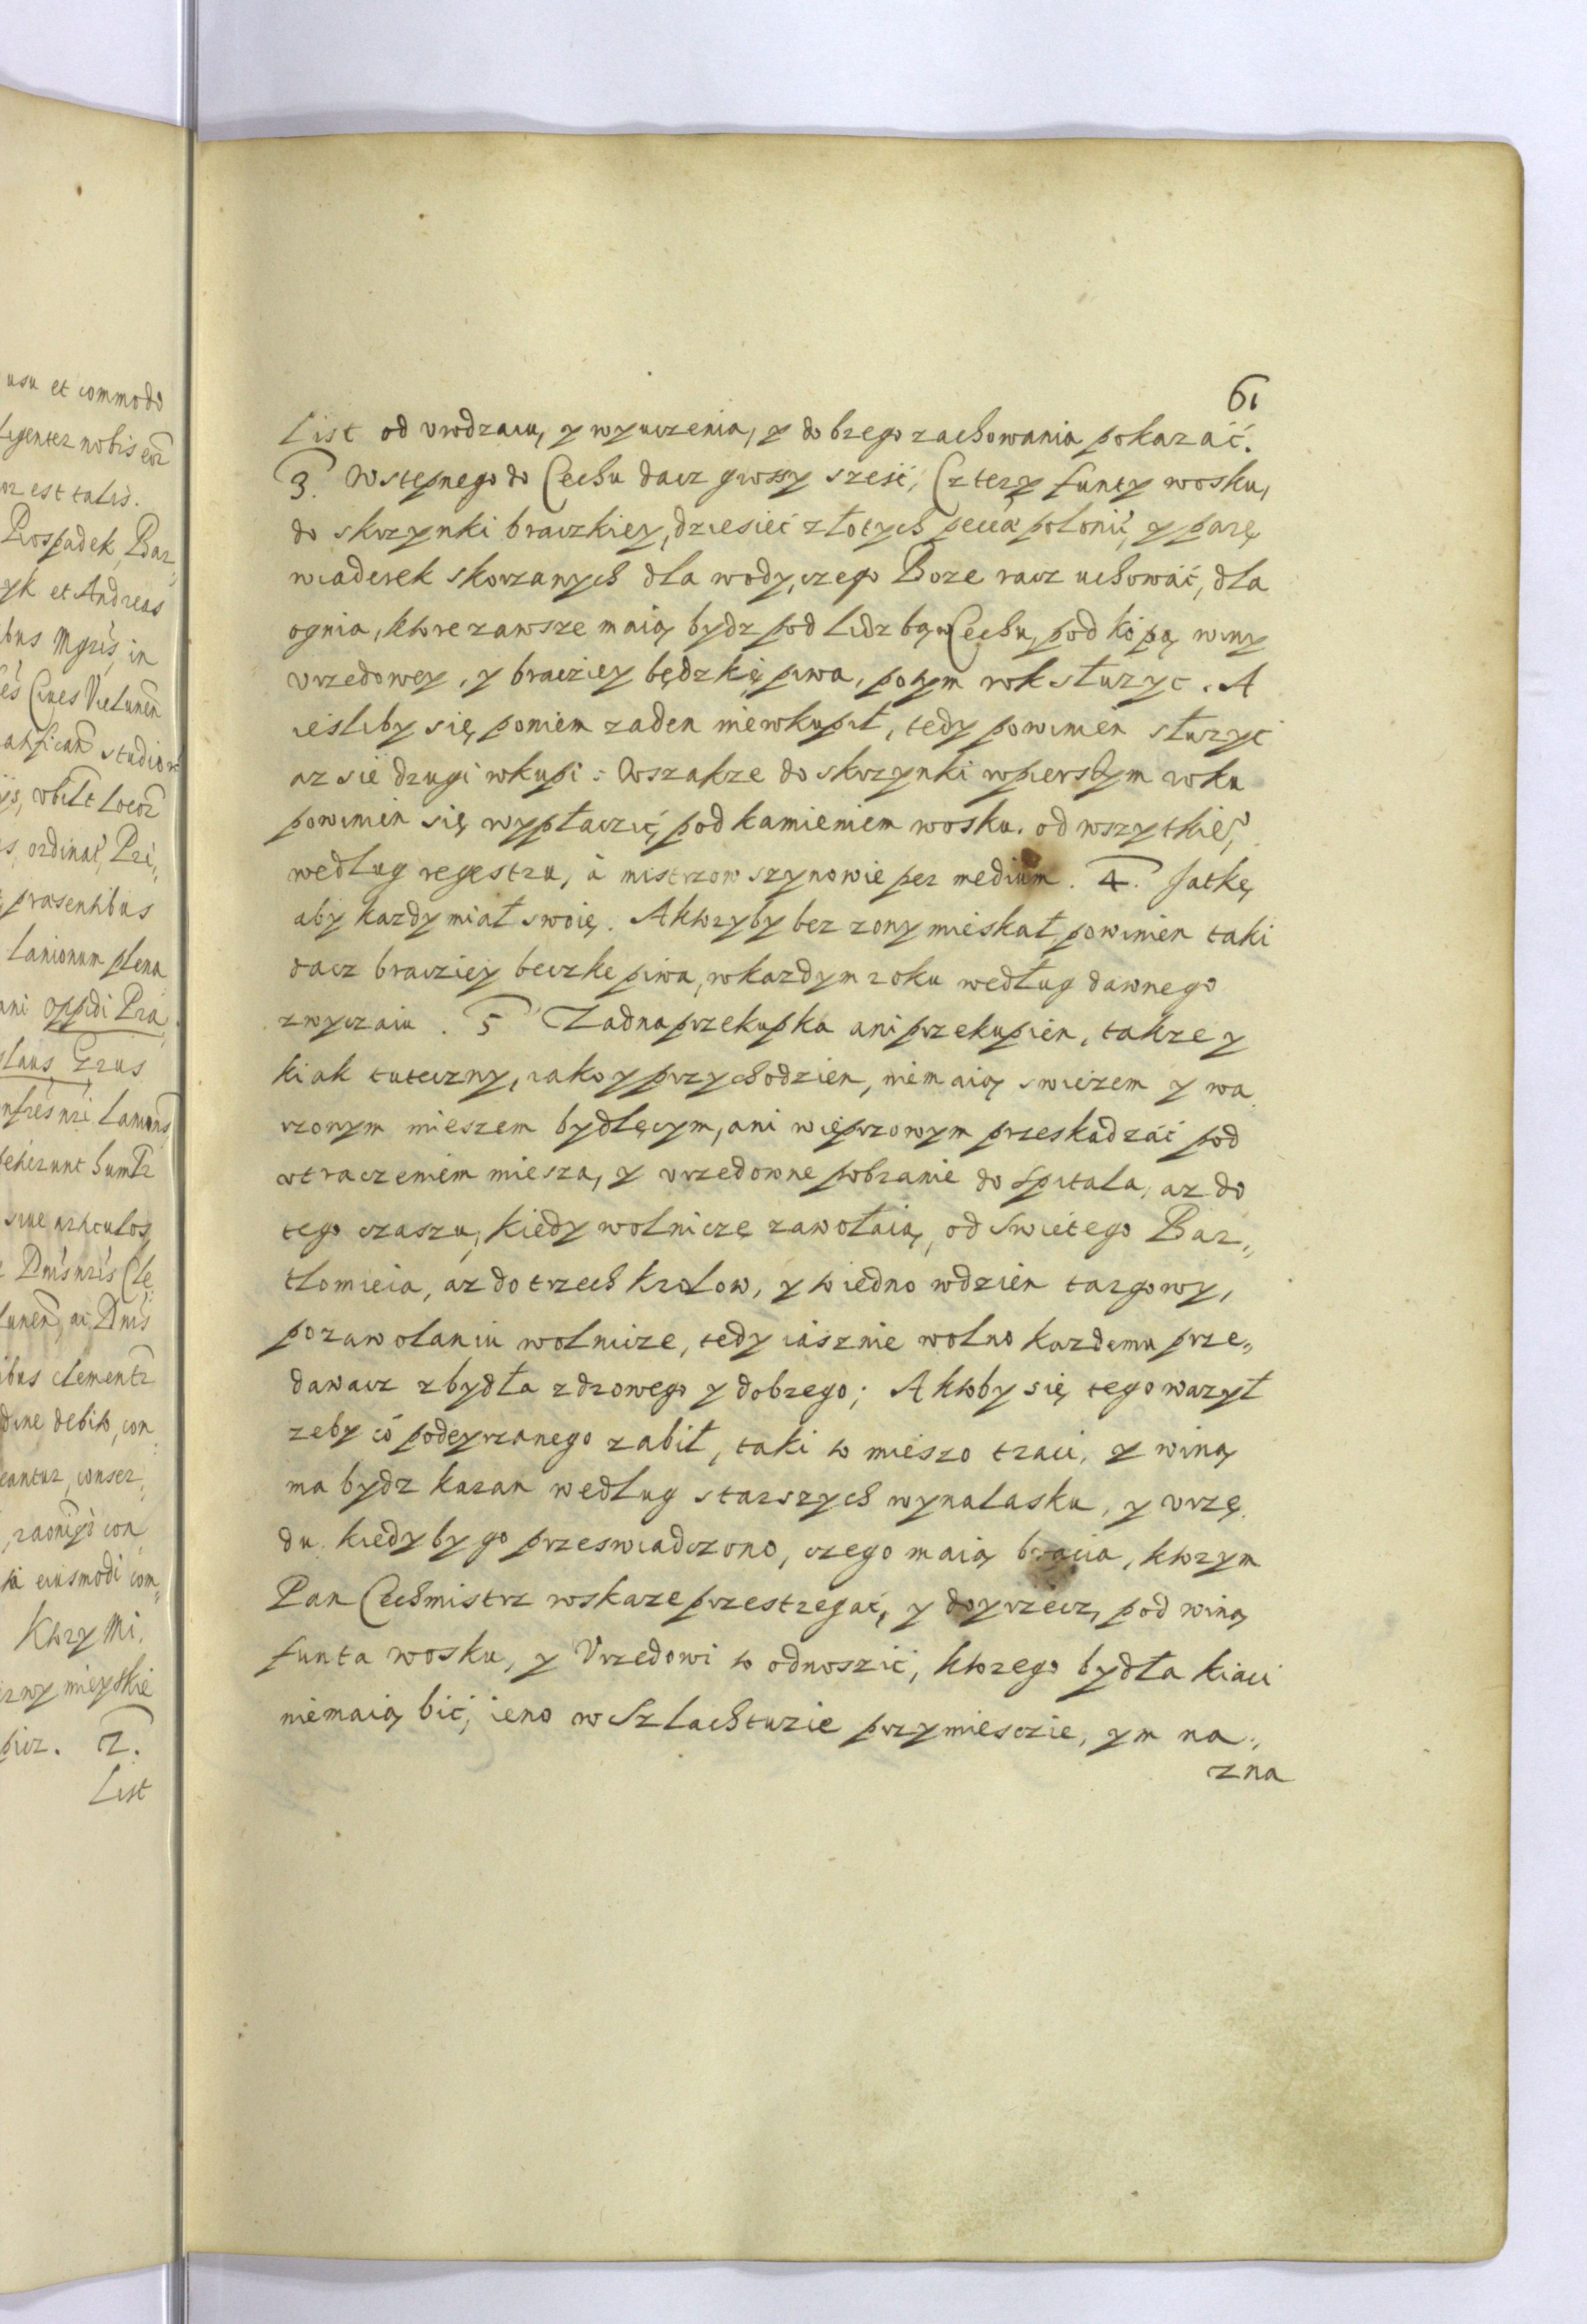 usu et commodo
ligenter nobis
est talis.
Prospadek, Bar„
yk et Andreas
in
Cives Vielunen
studio
ordinat, Pri„
præsentibus
Lanionum plena
oppidi Pra
Grus
sive articulos
clementr
debito, con
eantur, conser„
con
eiusmodi com„
Ktorzy Mi„
mieyskie
2.
List
61
List od vrodzaiu, y wyuczenia, y dobrego zachowania pokazać.
3. Wstępnego do Cechu dacz groszy sześć, Cztery funty wosku,
do skrzynki braczkiey, dziesieć złotych pecu poloni, y parę
wiaderek skorzanych dla wody, czego Boze racz uchować, dla
ognia, ktore zawsze maią bydz pod lidzbą w Cechu, pod kopą winy
vrzedowey, y bracziey będzkę piwa, potym rok słuzyc. A
iesliby się poniem zaden niewkupił, tedy powinien słuzyc
az sie drugi wkupi: Wszakze do skrzynki wpierszym roku
powinien się wypłaczić, pod kamieniem wosku. od wszytkieg
według regestru, à mistrzow szynowie per medium. 4. Jatkę
aby kazdy miał swoię. A ktoryby bez zony mieskał, powinien taki
dacz bracziey beczke piwa, wkazdym roku według dawnego
zwyczaiu. 5 Zadna przekupka ani przekupien, takze y
kiak tuteczny, iako y przychodzien, niemaią swieżem y wa„
rzonym mieszem bydlęcym, ani wieprzowym przeskadzać pod
vtraczeniem miesza, y vrzedowne pobranie do szpitala, az do
tego czaszu, kiedy wolniczę zawołaią, od swietego Bar„
tłomieia, az do trzech krolow, y to iedno wdzien targowy,
po zawolaniu wolnicze, tedy iasznie wolno kazdemu prze„
dawacz z bydła zdrowego y dobrego; A ktoby się tego wazył
zeby co podeyrzanego zabił, taki to mieszo traci, y winą
ma bydz karan według starszych wynalasku, y vrzę„
du. kiedyby go przeswiadczono, czego maią bracia, ktorym
Pan Cechmistrz wskaze przestrzegać, y doyrzecz, pod winą
funta wosku, y Vrzedowi to odnoszić, ktorego bydła kiaci
niemaią bić, ieno w Szlachtuzie przymiesczie, ym na„
zna